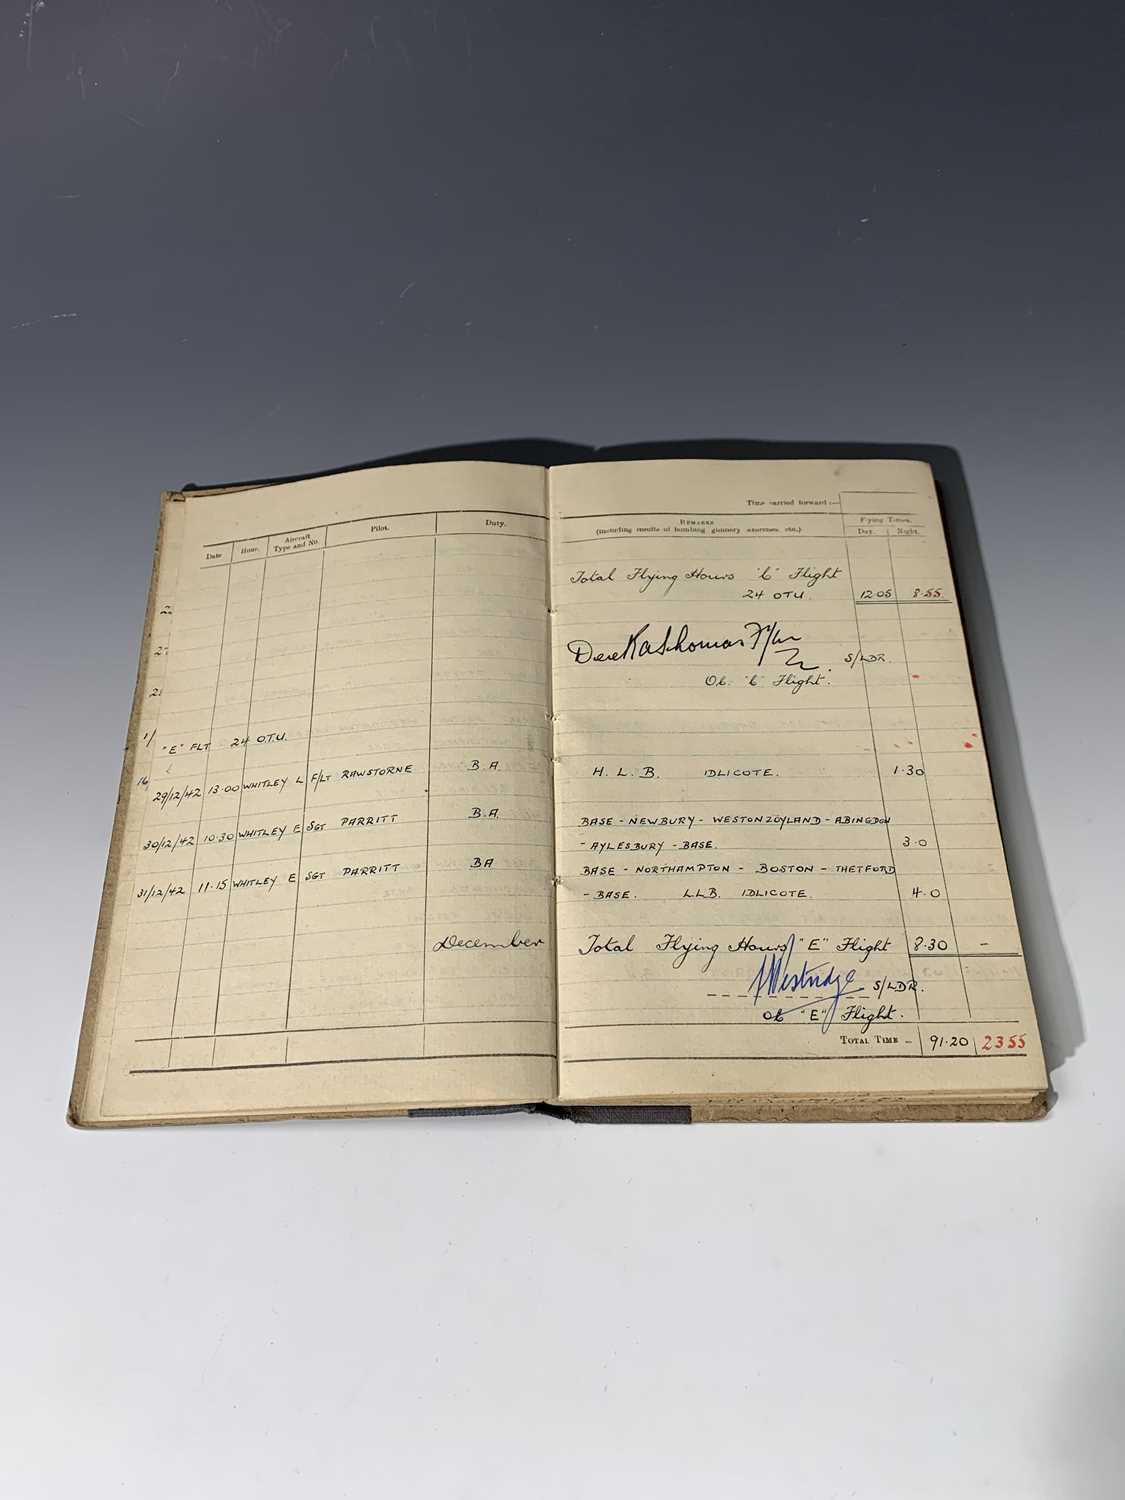 Time carried forward :—
Date Hour. Aircraft Type and No. Pilot. Duty.
REMARKS
(including results of bombing gunnery exercises, etc.)
Flying Times.
Day. Night.
Total Flying Hours "C" Flight
24 OTU. 12.05 8.55
S/LDR.
OC. "C" Flight.
1/
"E" FLT 24 O.T.U.
16/
29/12/42 13.00 WHITLEY L F/LT RAWSTORNE B.A. H.L.B. IDLICOTE. 1.30
30/12/42 10.30 WHITLEY E SGT PARRITT B.A. BASE - NEWBURY - WESTONZOYLAND - ABINGDON
- AYLESBURY - BASE. 3.0
31/12/42 11.15 WHITLEY E SGT PARRITT BA BASE - NORTHAMPTON - BOSTON - THETFORD
- BASE. L.L.B. IDLICOTE. 4.0
December Total Flying Hours "E" Flight 8.30 -
S/LDR.
OC "E" Flight.
TOTAL TIME - 91.20 23 55